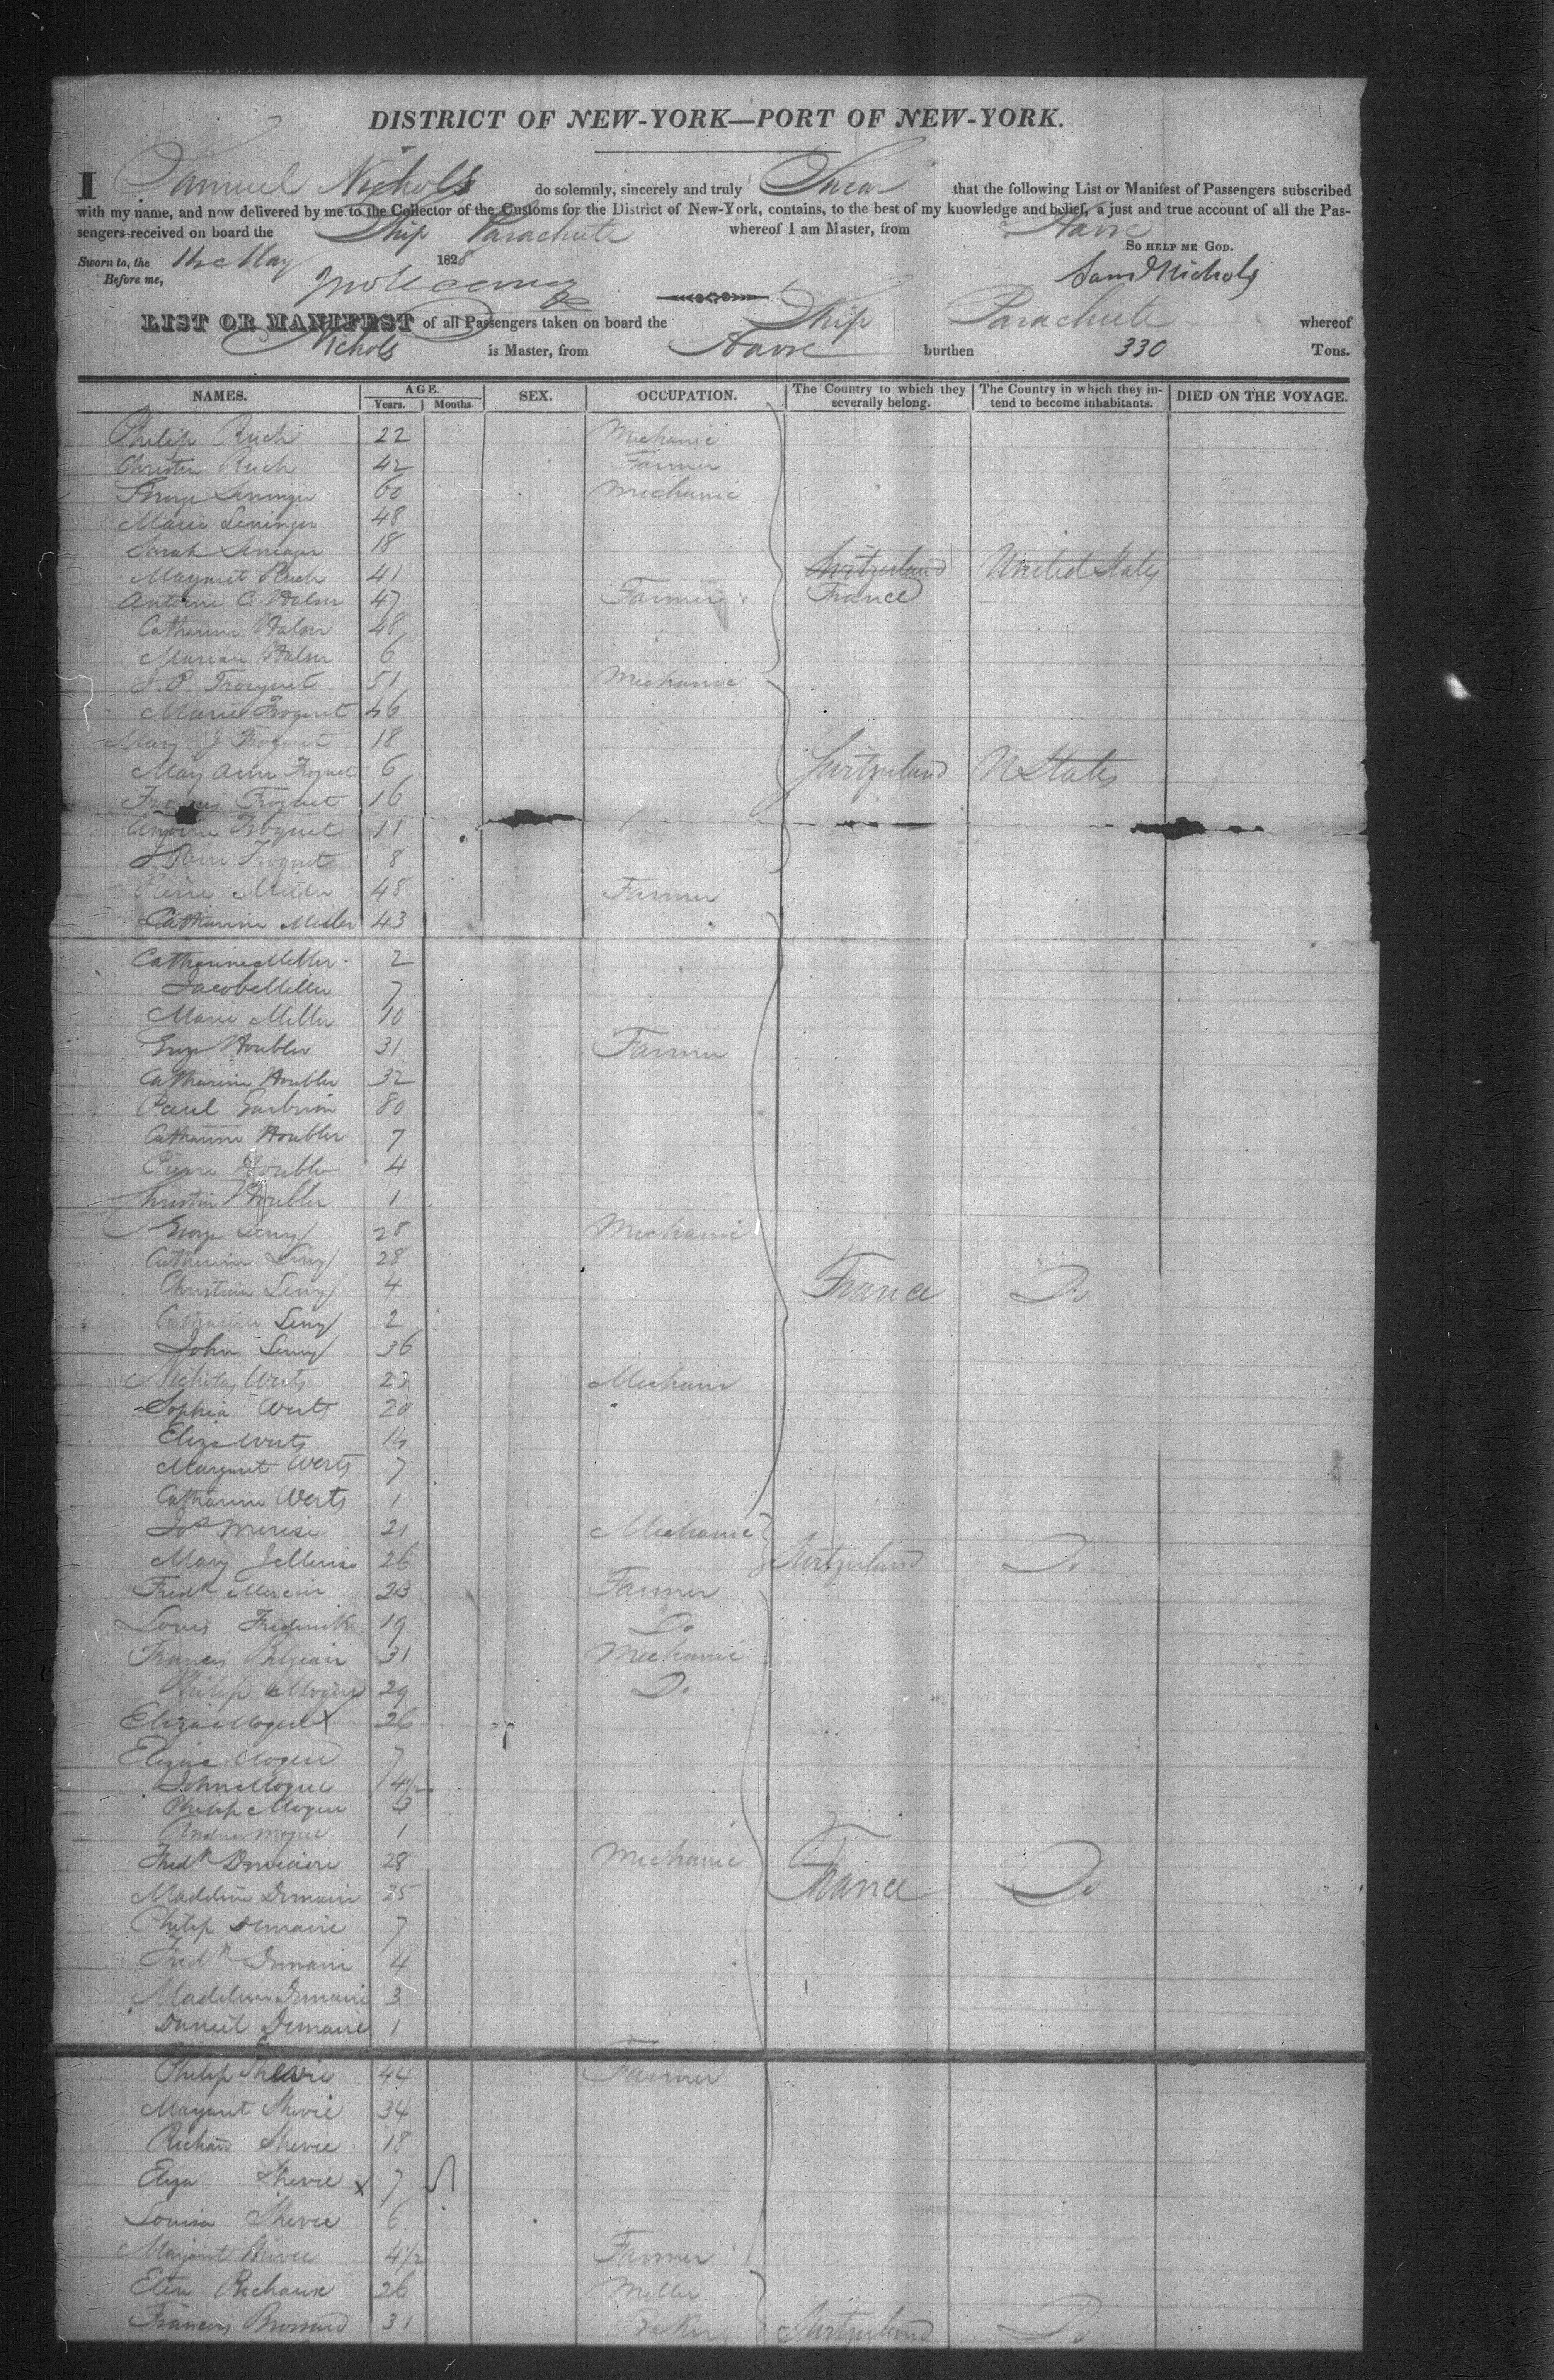 DISTRICT OF NEW-YORK—PORT OF NEW-YORK.
I Samuel Nichols do solemnly, sincerely and truly Swear that the following List or Manifest of Passengers subscribed
with my name, and now delivered by me to the Collector of the Customs for the District of New-York, contains, to the best of my knowledge and belief, a just and true account of all the Pas-
sengers received on board the Ship Parachute whereof I am Master, from Havre
So HELP ME GOD.
Sworn to, the May 1828
Before me,
Saml Nichols
LIST OR MANIFEST of all Passengers taken on board the Ship Parachute whereof
Nichols is Master, from Havre burthen 330 Tons.
NAMES. AGE. SEX. OCCUPATION. The Country to which they severally belong. The Country in which they in- tend to become inhabitants. DIED ON THE VOYAGE.
Years. Months.
Philip Ruch 22 Mechanic
Christin Ruch 42 Farmer
George 60 Mechanic
Marie Leninger 48
Sarah 18
Margaret Ruch 41 Switzerland United States
Antoine C. 47 Farmer France
Catharine 48
6
J P Troquet 51 Mechanic
Marie Froquet 46
Mary J Froquet 18
Mary Ann Froquet 6 Switzerland U States
Francis Froquet 16
Antoine Froquet 11
J Pierre Froquet 8
Pierre Miller 48 Farmer
Catharine Miller 43
Catharine Miller 2
Jacob Miller 7
Marie Miller 10
Houbler 31 Farmer
Catharine Houbler 32
Paul 80
Catharine Houbler 7
Pierre Houbler 4
Christin Houbler 1
George Leny 28 Mechanic
Catharine Leny 28
Christian Leny 4 France Do
Catharine Leny 2
John Leny 36
Nicholas Werts 23 Mechanic
Sophia Werts 20
Eliza Werts
Margaret Werts 7
Catharine Werts 1
Jos Merise 21 Mechanic
Mary J Merise 26 Switzerland Do
Fredk Mercier 23 Farmer
Louis Frederick 19 Do
Francis 31 Mechanic
Philip Mogue 29 Do
Eliza Mogue X 26
Eliza Mogue 7
John Mogue 4½
Philip Mogue 3
Andrew Mogue 1
Fredk Demaire 28 Mechanic France Do
Madeline Demaire 25
Philip Demaire 7
Fredk Demaire 4
Madeline Demaire 3
Daniel Demaire 1
Philip Shevie 44 Farmer
Margaret Shevie 34
Richard Shevie 18
Eliza Shevie X 7
Louisa Shevie 6
Margaret Shevie 4½ Farmer
Richaux 26 Miller
Francois Brossard 31 Baker Switzerland Do